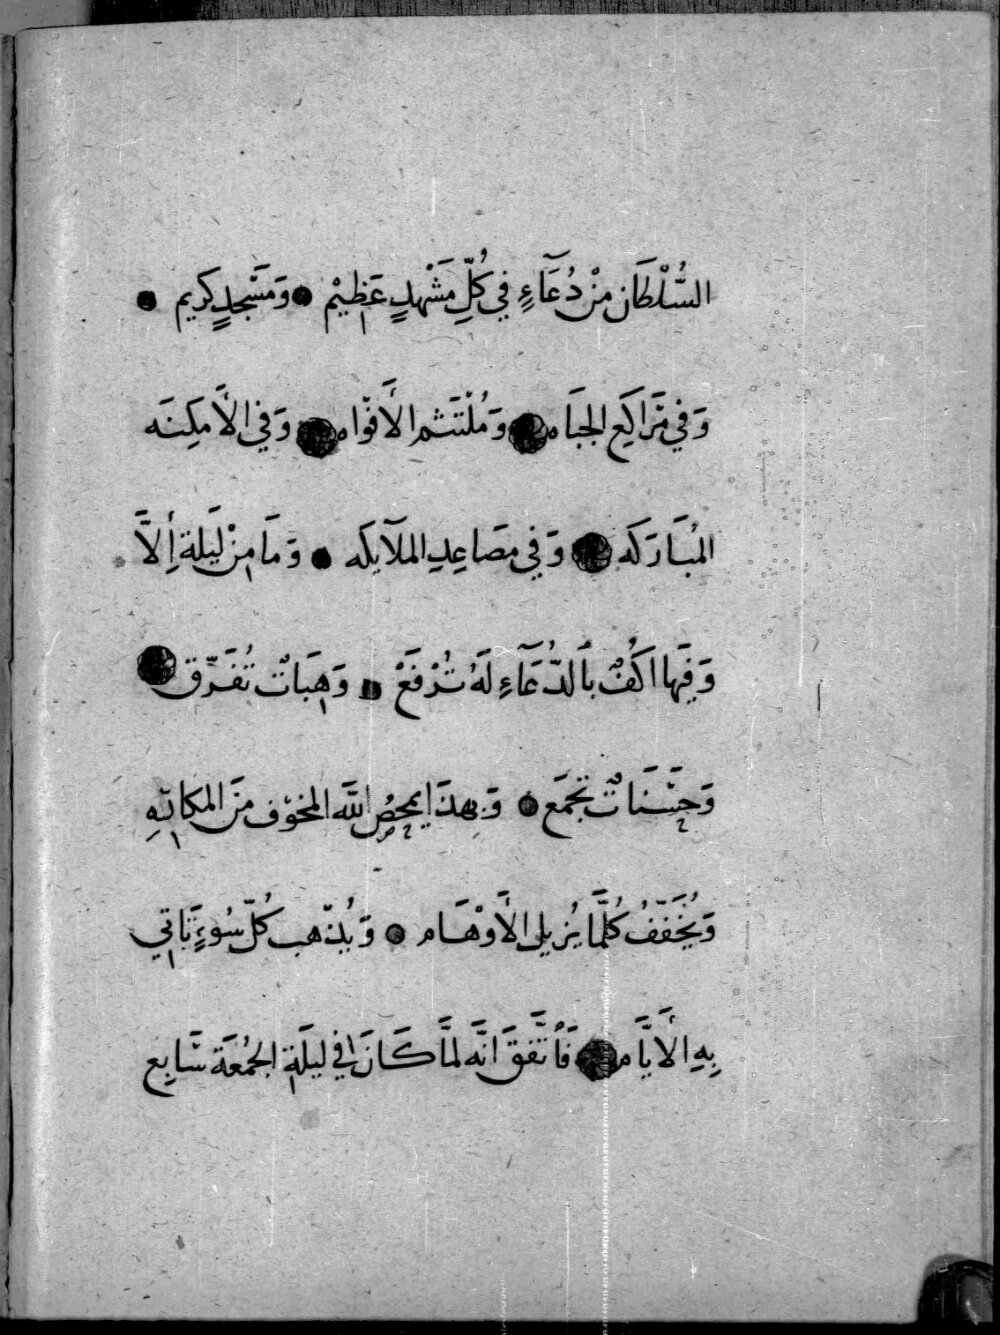 السُّلْطَان مِنْ دُعَآءٍ فِي كُلِّ مَشْهَدٍ عَظِيمْ ● وَمَسْجِدٍ كَرِيم ●
وَفِي مَرَاكِعِ الجبَاه ● وَمُلْتَثم الأَفْوَاه ● وَفي الأَمكِنَه
المُبَارَكَه ● وَفِي مصَاعِدِ الملآيكَه ● وَمَا مِنْ لَيلة إِلاَّ
وَفِيهَا اكُفٌ بالدُّعَآءِ لَهُ تُرْفَعْ ● وَهِبَاتٌ تُفَرَّق ●
وَحَسَنَاتٌ تجمَع ● وَبهذَا يمحِصُ اللَّه المخوْف مِنَ المكَارِهِ
وَيُخَفِّفُ كُلَّمَا يُزيل الأَوْهَام ● وَيُذْهب كُلّ سُوءٍ تَاتي
بِهِ الأَيَّام ● فَاتَّفقَ انَّه لمَّا كَانَ في ليلَة الجُمُعَة سَابع